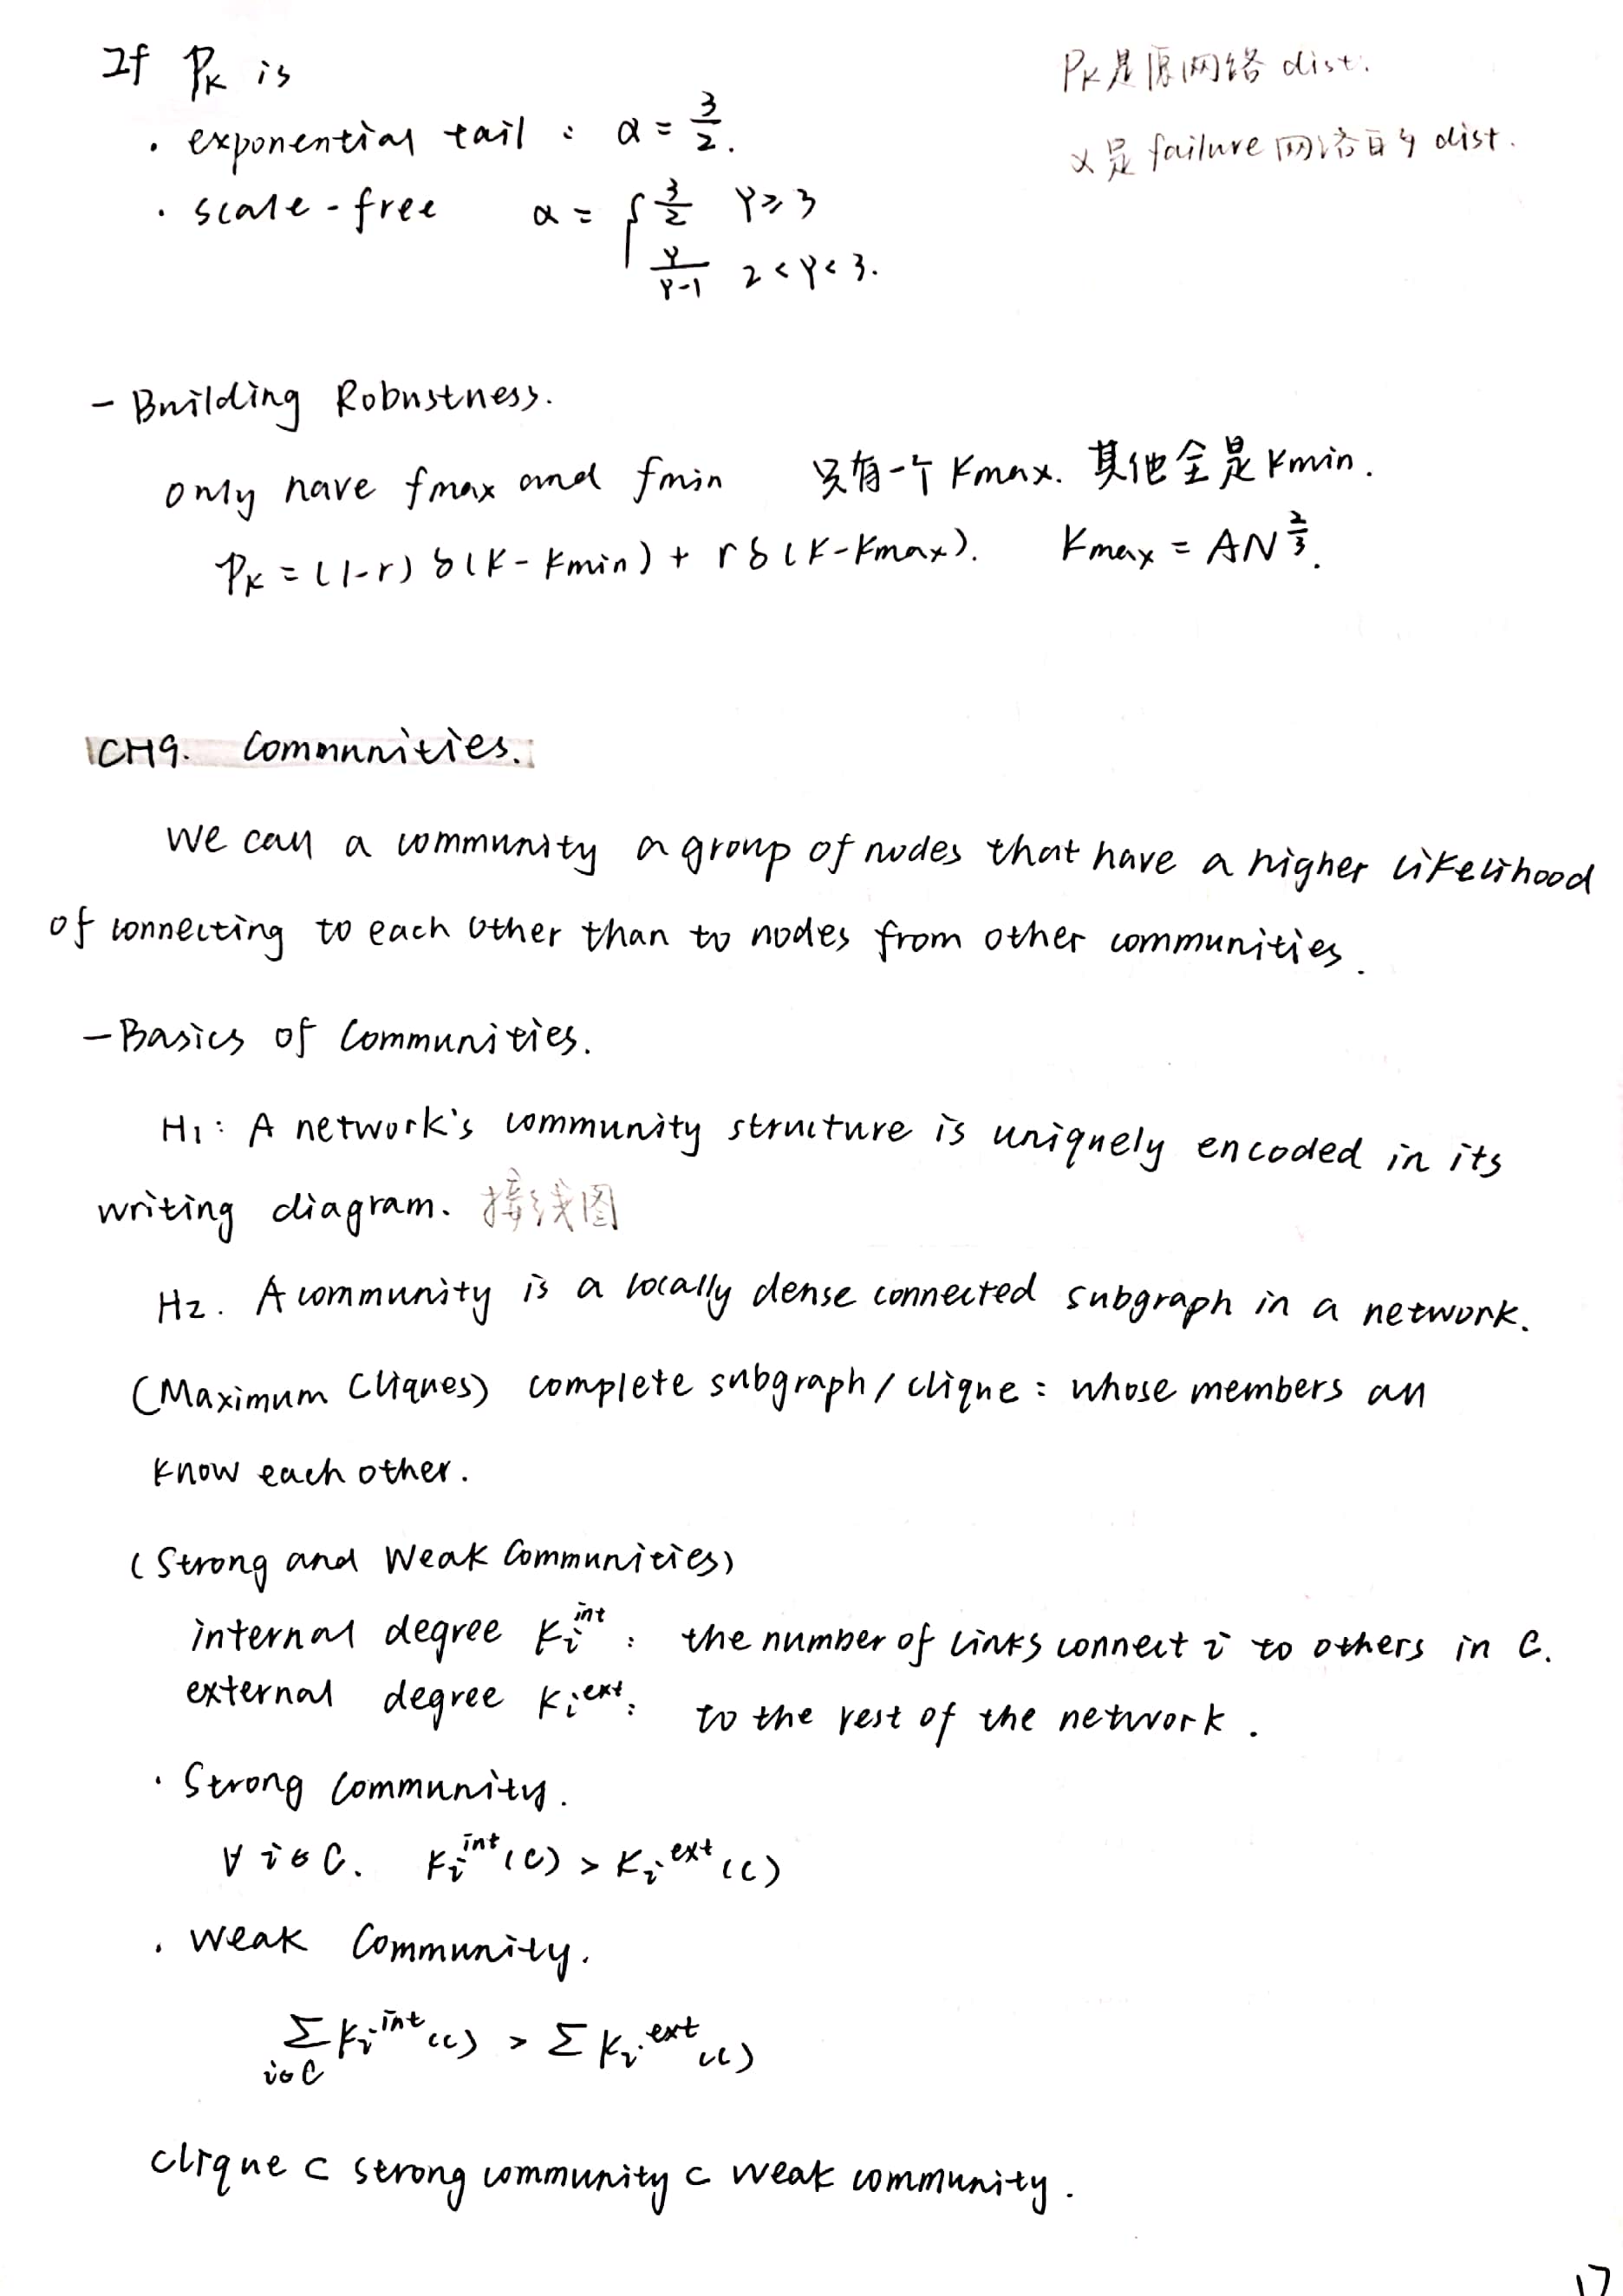 If Pk is
Pk是原网络 dist.
· exponential tail : α = 3/2.
α是 failure 网络的 dist.
· scale-free α = { 3/2 γ ≥ 3
γ/(γ-1) 2 < γ < 3.
- Building Robustness.
only have fmax and fmin 只有一个 Kmax. 其他全是 Kmin.
Pk = (1-r) δ(K-Kmin) + r δ(K-Kmax). Kmax = AN^(2/3).
CH9. Communities.
We call a community a group of nodes that have a higher likelihood
of connecting to each other than to nodes from other communities.
- Basics of Communities.
H1: A network's community structure is uniquely encoded in its
writing diagram. 接线图
H2. A community is a locally dense connected subgraph in a network.
(Maximum Cliques) complete subgraph / clique: whose members all
know each other.
(Strong and Weak Communities)
internal degree Ki^int : the number of links connect i to others in C.
external degree Ki^ext : to the rest of the network.
· Strong Community.
∀ i∈C. Ki^int(C) > Ki^ext(C)
· Weak Community.
Σ_{i∈C} Ki^int(C) > Σ Ki^ext(C)
clique ⊂ strong community ⊂ weak community.
17